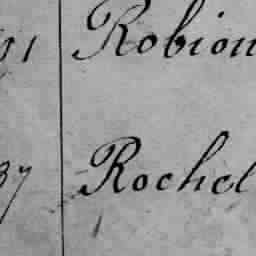 01 Robion
37 Rochel